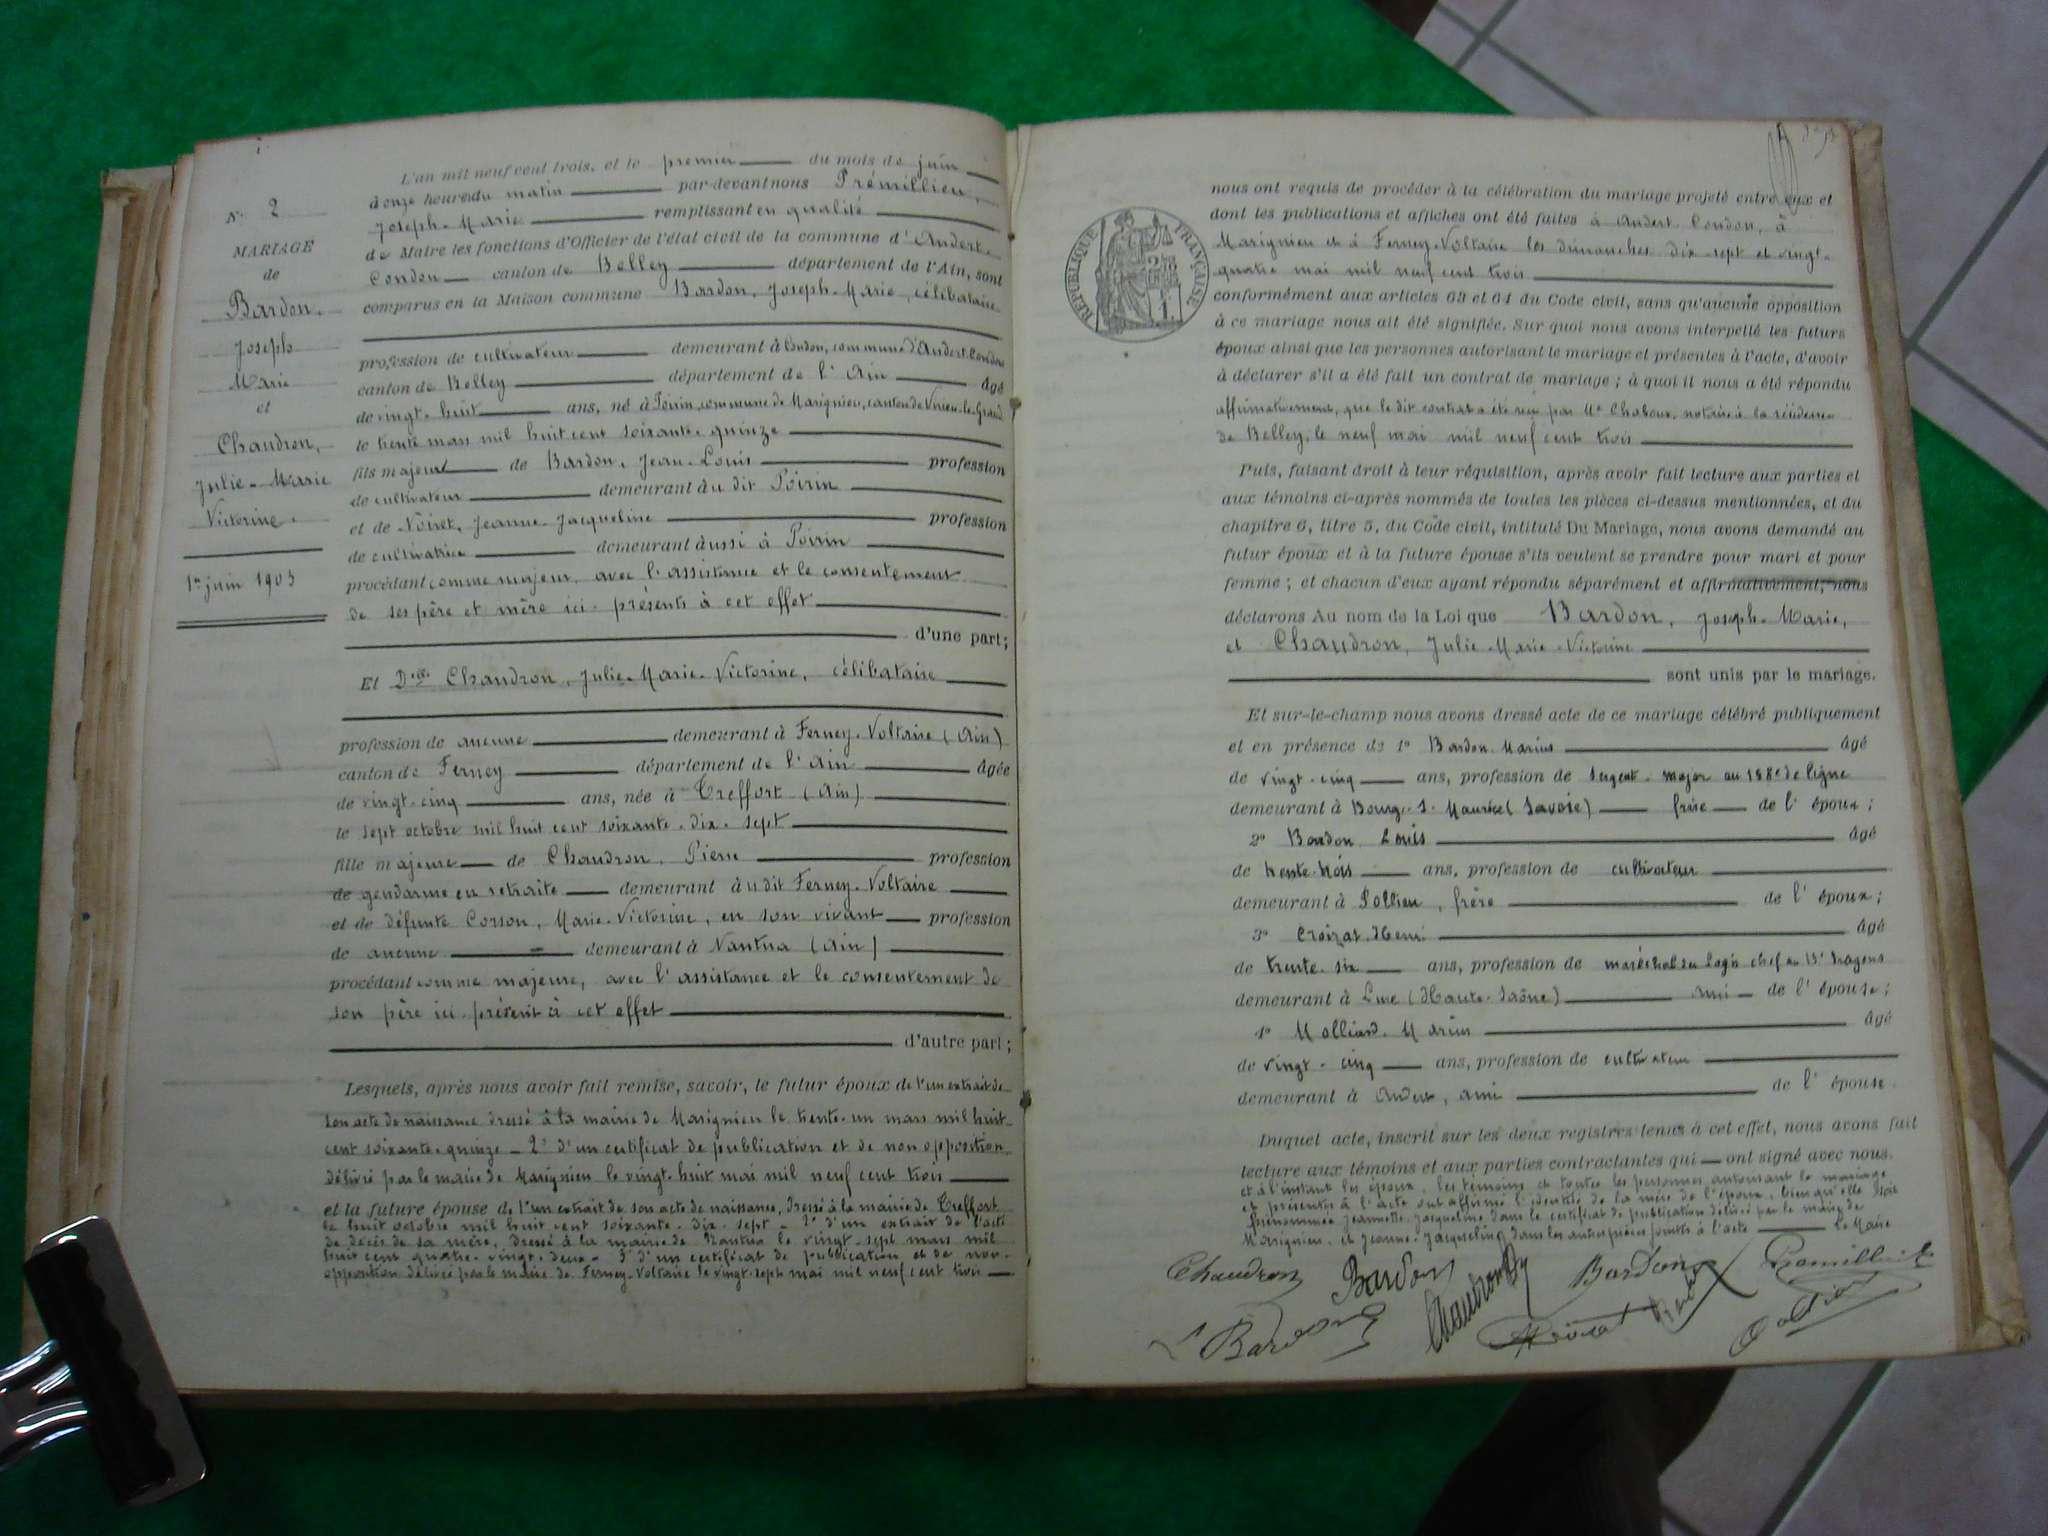 N° 2
MARIAGE
de
Bardon,
Joseph
Marie
et
Chaudron,
Julie-Marie
Victorine.
1er juin 1903
L'an mil neuf cent trois, et le premier du mois de juin
à onze heures du matin par-devant nous Prémillieu,
Joseph-Marie remplissant en qualité
de Maire les fonctions d'Officier de l'état civil de la commune d'Andert-
Condon canton de Belley département de l'Ain, sont
comparus en la Maison commune Bardon, Joseph-Marie, célibataire
profession de cultivateur demeurant à Condon, commune d'Andert-Condon
canton de Belley département de l'Ain âgé
de vingt-huit ans, né à Poirin, commune de Marignieu, canton de Virieu-le-Grand
le trente mars mil huit cent soixante-quinze
fils majeur de Bardon, Jean-Louis profession
de cultivateur demeurant au dit Poirin
et de Noiret, Jeanne-Jacqueline profession
de cultivatrice demeurant aussi à Poirin
procédant comme majeur, avec l'assistance et le consentement
de ses père et mère ici présents à cet effet
d'une part;
Et Delle Chaudron, Julie-Marie-Victorine, célibataire
profession de aucune demeurant à Ferney-Voltaire (Ain)
canton de Ferney département de l'Ain âgée
de vingt-cinq ans, née à Treffort (Ain)
le sept octobre mil huit cent soixante-dix-sept
fille majeure de Chaudron, Pierre profession
de gendarme en retraite demeurant au dit Ferney-Voltaire
et de défunte Corson, Marie-Victorine, en son vivant profession
de aucune demeurant à Nantua (Ain)
procédant comme majeure, avec l'assistance et le consentement de
son père ici présent à cet effet
d'autre part;
Lesquels, après nous avoir fait remise, savoir, le futur époux de 1° un extrait de
son acte de naissance dressé à la mairie de Marignieu le trente-un mars mil huit
cent soixante-quinze - 2° d'un certificat de publication et de non opposition
délivré par le maire de Marignieu le vingt-huit mai mil neuf cent trois
et la future épouse de 1° un extrait de son acte de naissance, dressé à la mairie de Treffort
le huit octobre mil huit cent soixante-dix-sept - 2° d'un extrait de l'acte
de décès de sa mère, dressé à la mairie de Nantua le vingt-sept mars mil
huit cent quatre-vingt-deux - 3° d'un certificat de publication et de non-
opposition délivré par le maire de Ferney-Voltaire le vingt-sept mai mil neuf cent trois
RÉPUBLIQUE FRANÇAISE
nous ont requis de procéder à la célébration du mariage projeté entre eux et
dont les publications et affiches ont été faites à Andert-Condon, à
Marignieu et à Ferney-Voltaire les dimanches dix-sept et vingt-
quatre mai mil neuf cent trois
conformément aux articles 63 et 64 du Code civil, sans qu'aucune opposition
à ce mariage nous ait été signifiée. Sur quoi nous avons interpellé les futurs
époux ainsi que les personnes autorisant le mariage et présentes à l'acte, d'avoir
à déclarer s'il a été fait un contrat de mariage; à quoi il nous a été répondu
affirmativement, que le dit contrat a été reçu par Me Chaboux, notaire à la résidence
de Belley, le neuf mai mil neuf cent trois
Puis, faisant droit à leur réquisition, après avoir fait lecture aux parties et
aux témoins ci-après nommés de toutes les pièces ci-dessus mentionnées, et du
chapitre 6, titre 5, du Code civil, intitulé Du Mariage, nous avons demandé au
futur époux et à la future épouse s'ils veulent se prendre pour mari et pour
femme; et chacun d'eux ayant répondu séparément et affirmativement, nous
déclarons Au nom de la Loi que Bardon, Joseph-Marie,
et Chaudron, Julie-Marie-Victorine
sont unis par le mariage.
Et sur-le-champ nous avons dressé acte de ce mariage célébré publiquement
et en présence de 1° Bardon Marius âgé
de vingt-cinq ans, profession de sergent-major au 158e de ligne
demeurant à Bourg-S-Maurice (Savoie) frère de l'époux;
2° Bardon Louis âgé
de trente-trois ans, profession de cultivateur
demeurant à Pollieu, frère de l'époux;
3° Croizat Henri âgé
de trente-six ans, profession de maréchal des logis chef au 13e dragons
demeurant à Lure (Haute-Saône) ami de l'épouse;
4° Molliard Marius âgé
de vingt-cinq ans, profession de cultivateur
demeurant à Andert, ami de l'épouse.
Duquel acte, inscrit sur les deux registres tenus à cet effet, nous avons fait
lecture aux témoins et aux parties contractantes qui ont signé avec nous.
et à l'instant les époux, les témoins et toutes les personnes autorisant le mariage
et présentes à l'acte ont affirmé l'identité de la mère de l'époux, bien qu'elle soit
prénommée Jeannette-Jacqueline dans le certificat de publication délivré par le maire de
Marignieu et Jeanne-Jacqueline dans les autres pièces jointes à l'acte le Maire
Chaudron Bardon Chaudron Bardon Prémillieu
L Bardon